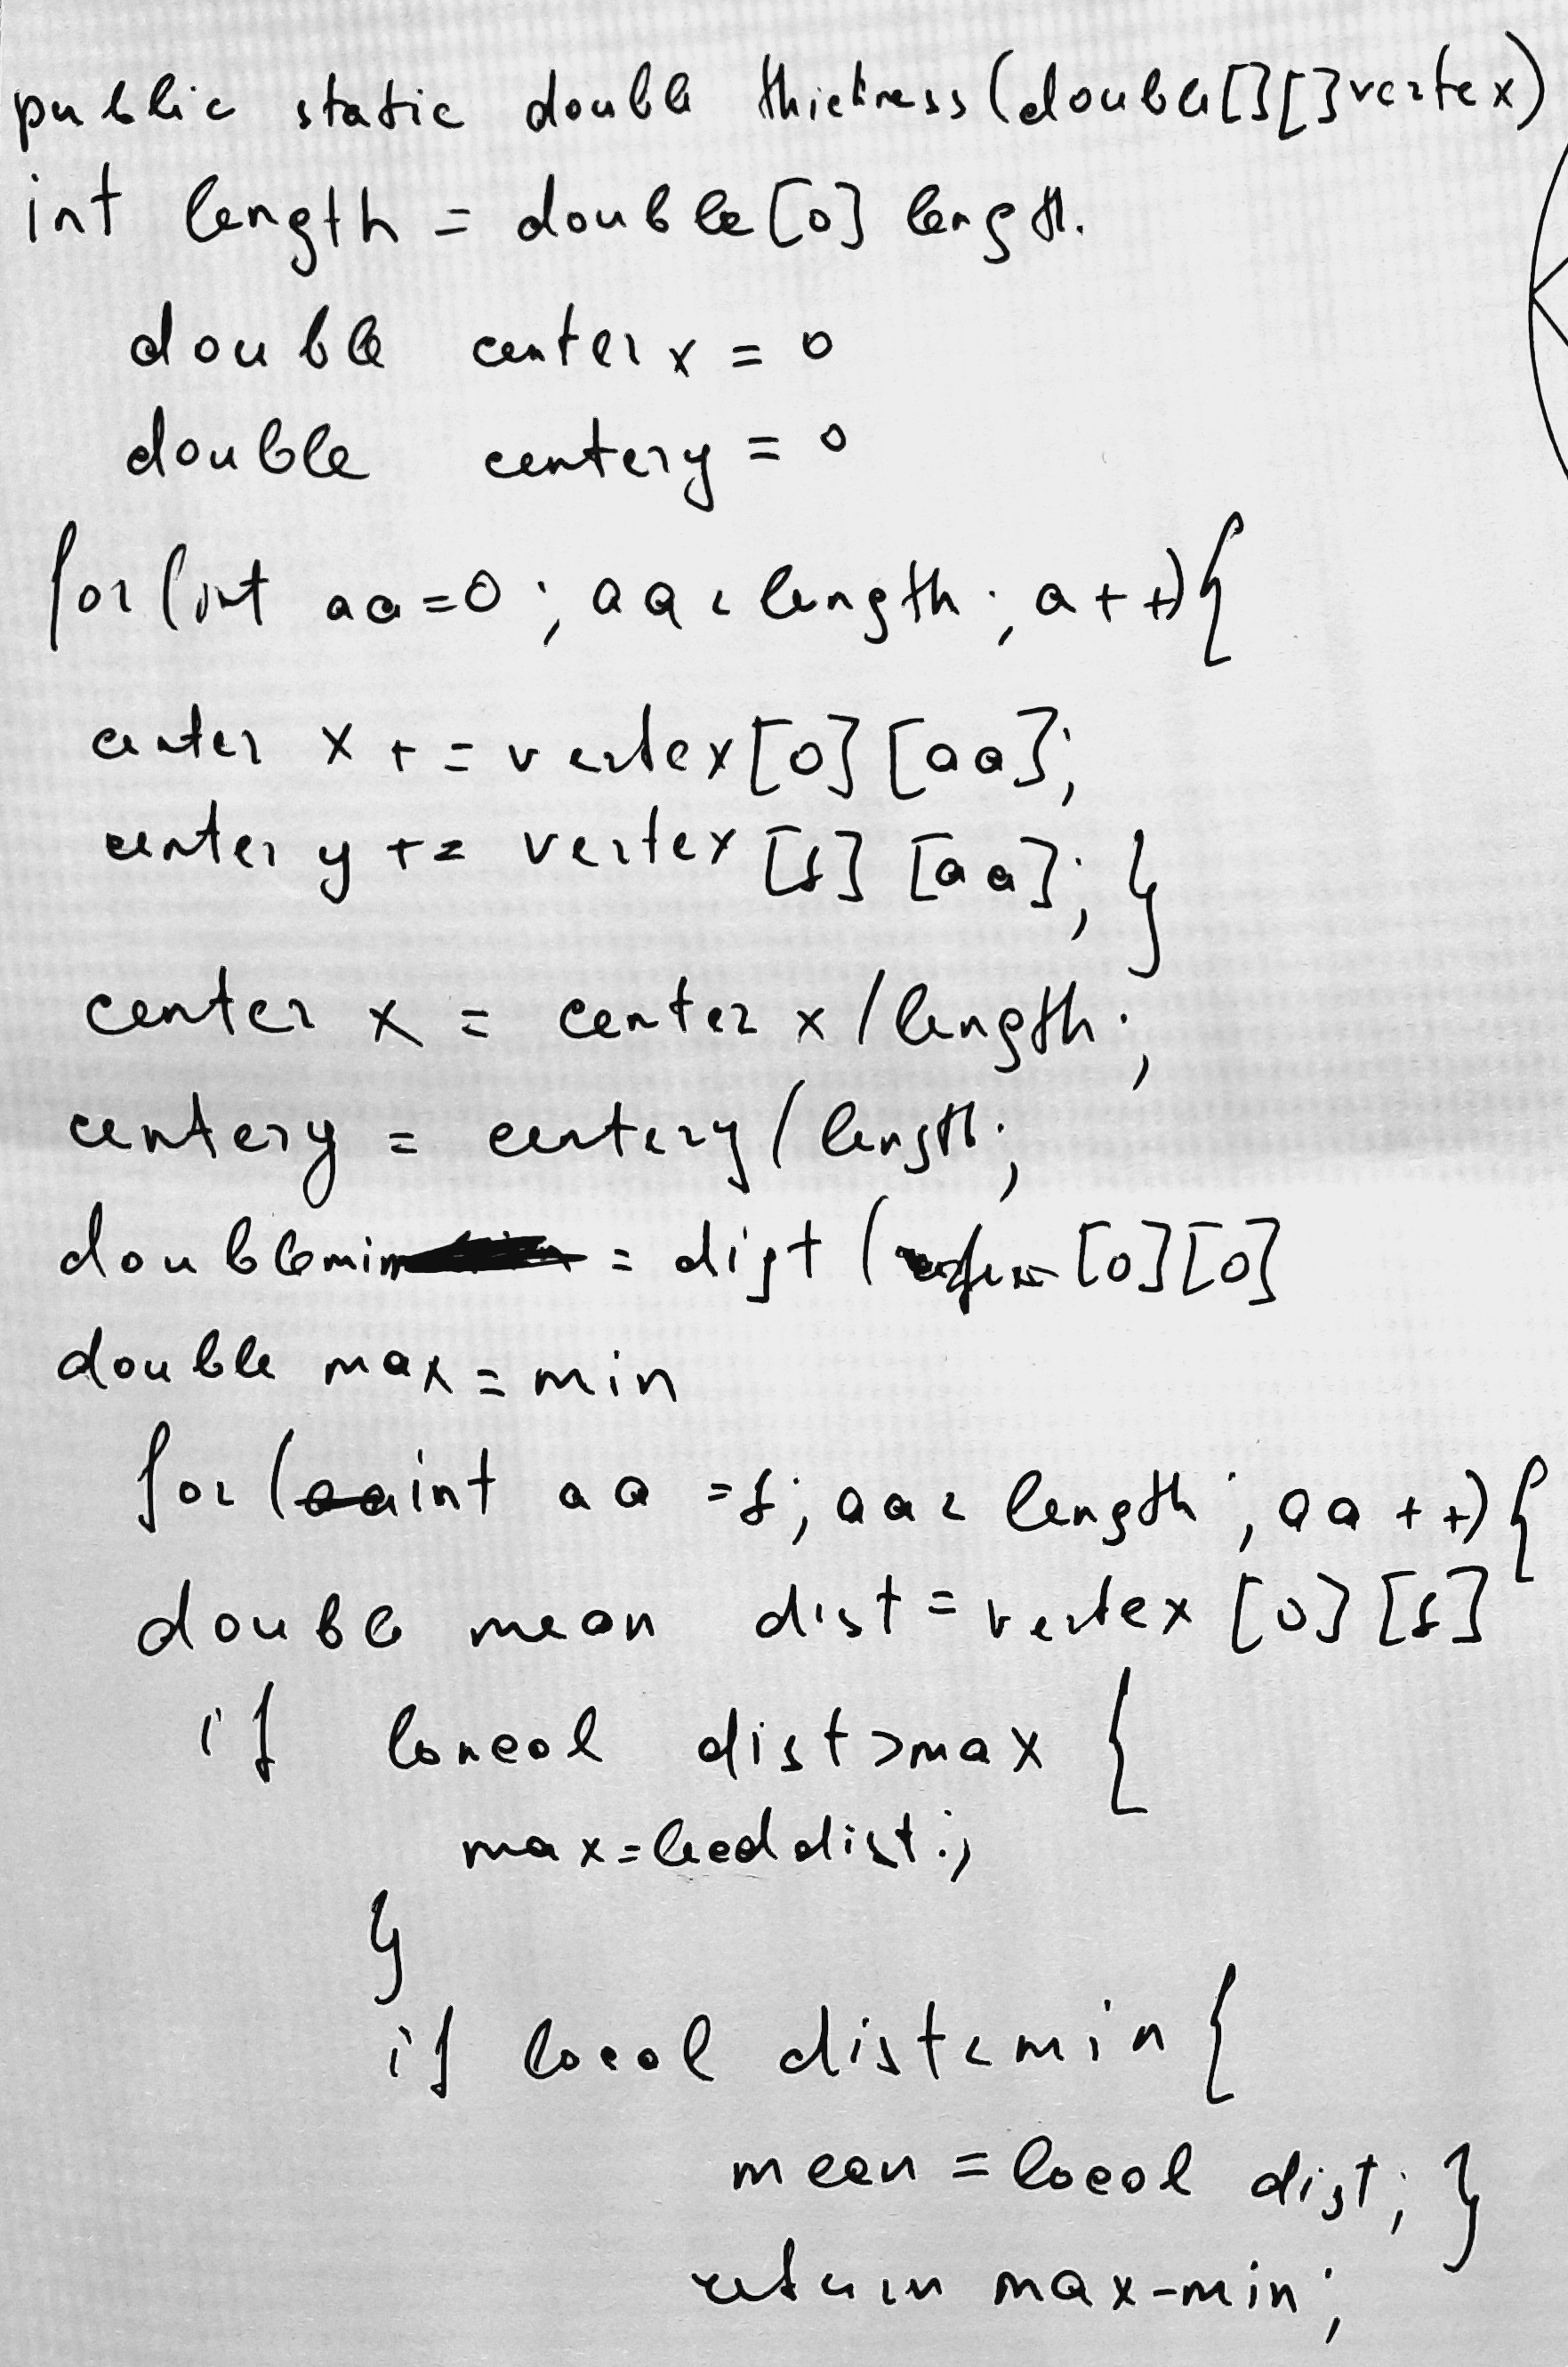 public static double thickness(double[][]vertex)
int length = double[0] length.
double centerx = 0
double centery = 0
for(int aa=0; aa<length; a++){
center x += vertex[0][aa];
center y += vertex[1][aa];}
center x = center x/length;
centery = centery/length;
double min = dist(vertex[0][0]
double max=min
for(int aa =1; aa< length; aa++){
double mean dist = vertex [0][1]
if dist>max {
max= dist;
}
if local dist<min{
mean = local dist;}
return max-min;